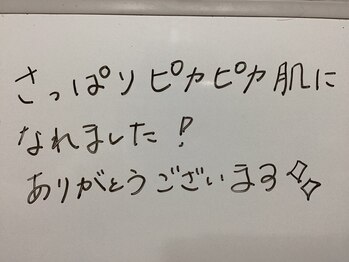 さっぱりピカピカ肌に
なれました！
ありがとうございます✨